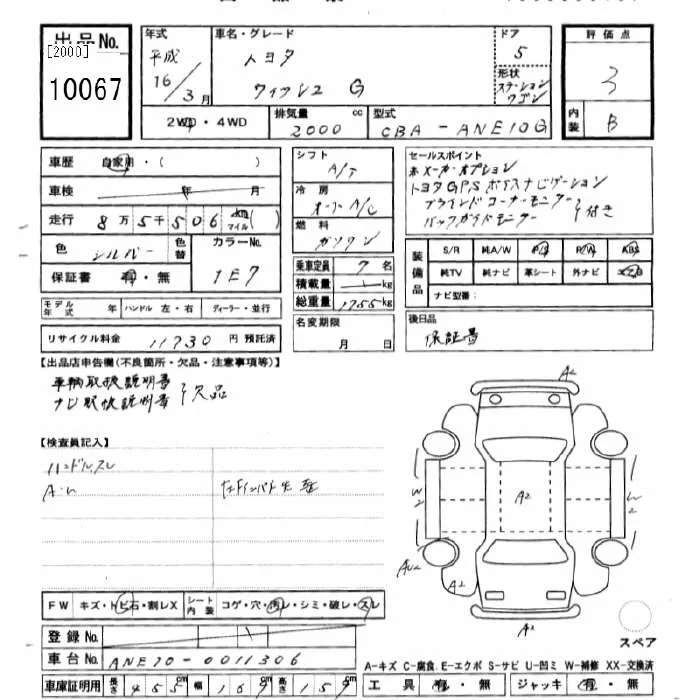 出品 No.
[2000]
10067
年式
平成
16/3月
車名・グレード
トヨタ
ウィッシュ G
ドア
5
形状
ステーション
ワゴン
評価点
3
内装
B
2WD・4WD
排気量
cc
2000
型式
CBA-ANE10G
車歴
自家用・( )
車検
年 月
走行
8万5千506
km
マイル( )
色
シルバー
色替
カラーNo.
1E7
保証書
有・無
モデル年式
年
ハンドル 左・右
ディーラー・並行
リサイクル料金
11730円 預託済
シフト
A/T
冷房
オートA/C
燃料
ガソリン
乗車定員
7名
積載量
kg
総重量
1755kg
名変期限
月 日
セールスポイント
メーカーオプション
トヨタGPSボイスナビゲーション
ブラインドコーナーモニター
バックガイドモニター
付き
装備品
S/R
純A/W
P/S
P/W
ABS
純TV
純ナビ
革シート
外ナビ
ナビ型番:
後日品
保証書
【出品店申告欄(不良箇所・欠品・注意事項等)】
車輌取扱説明書
ナビ取扱説明書
欠品
【検査員記入】
ハンドルスレ
A2
A2
W2
A2
A2
FW
キズ・トビ石・割レX
シート内装
コゲ・穴・汚レ・シミ・破レ・スレ
登録 No.
車台 No.
ANE10-0011306
車庫証明用
長さ
455cm
幅
169cm
高さ
159cm
スペア
A-キズ C-腐食 E-エクボ S-サビ U-凹ミ W-補修 XX-交換済
工具
有・無
ジャッキ
有・無